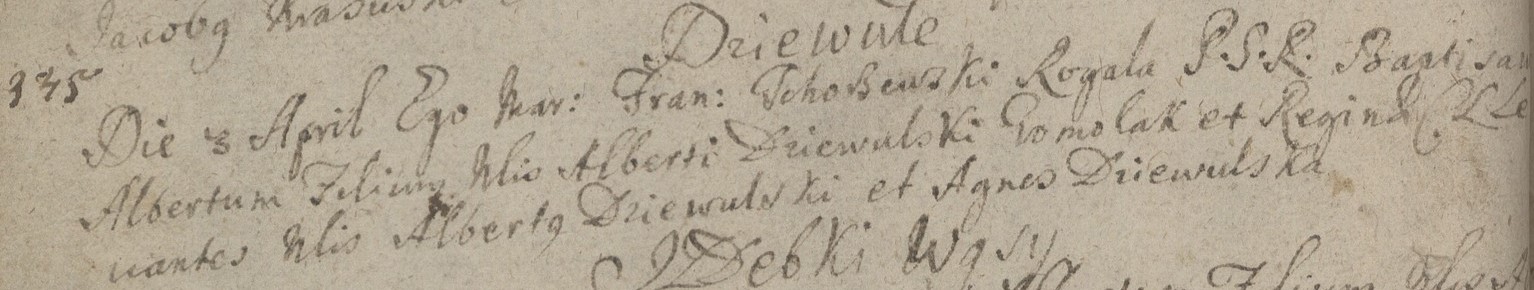 Jacobq
Driewule
175
Die 3 April Ego Mar: Fran: Schoßewski Rogala P.S.R. Baptisau
Albertum Filium Nlis Alberti Driewulski Gomolak et Regina C. Le
uantes Nlis Albertq Driewulski et Agnes Driewulska
Debki Wąsy
Filium